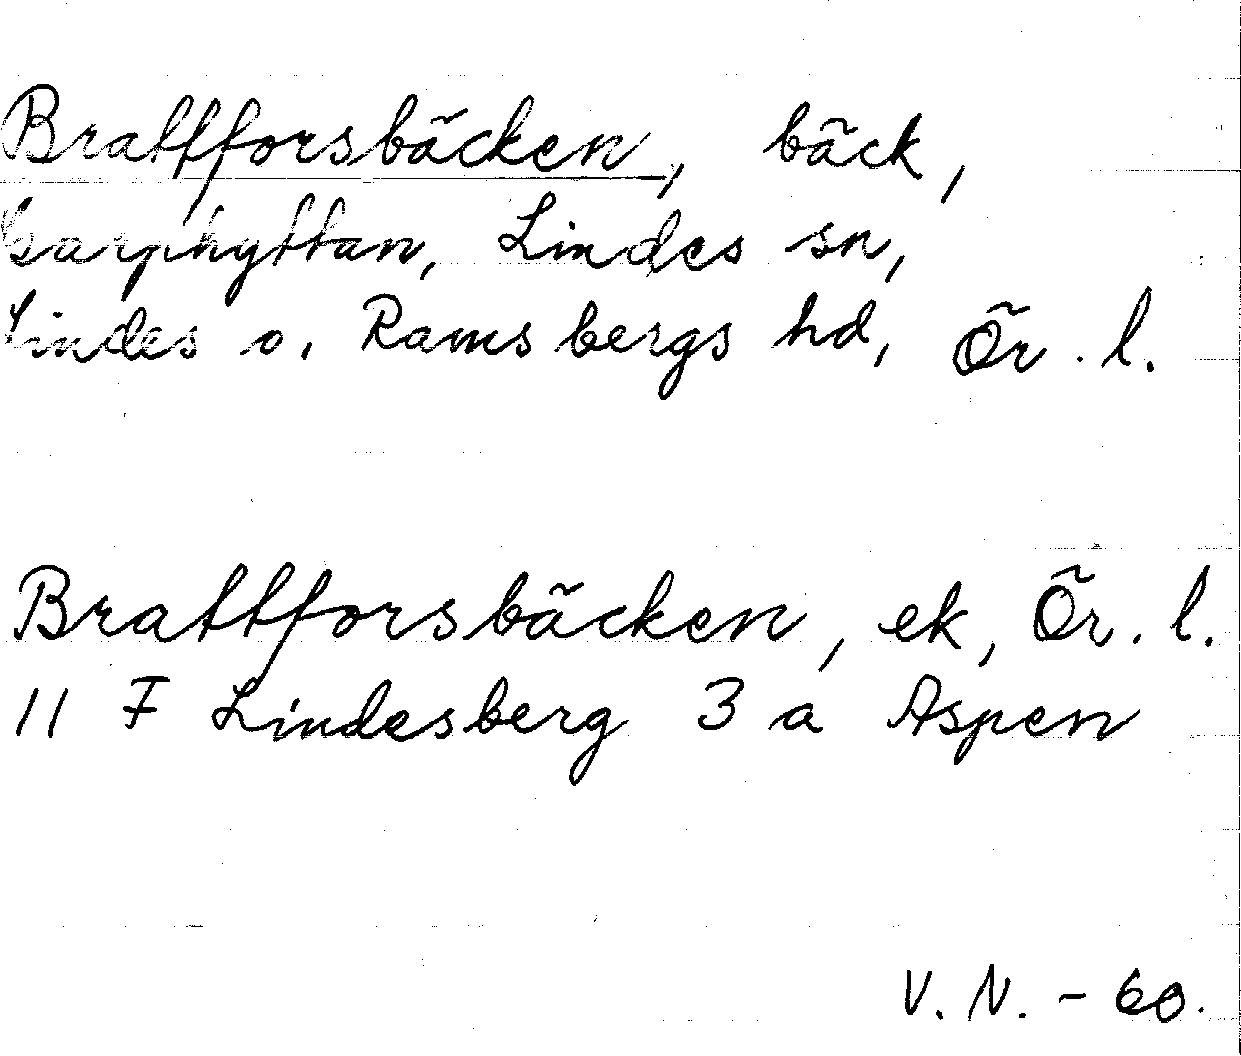 Brattforsbäcken, bäck,
Garphyttan, Lindes sn,
Lindes o. Ramsbergs hd, Ör. l.
Brattforsbäcken, ek, Ör. l.
11 F Lindesberg 3 a Aspen
V. N. - 60.